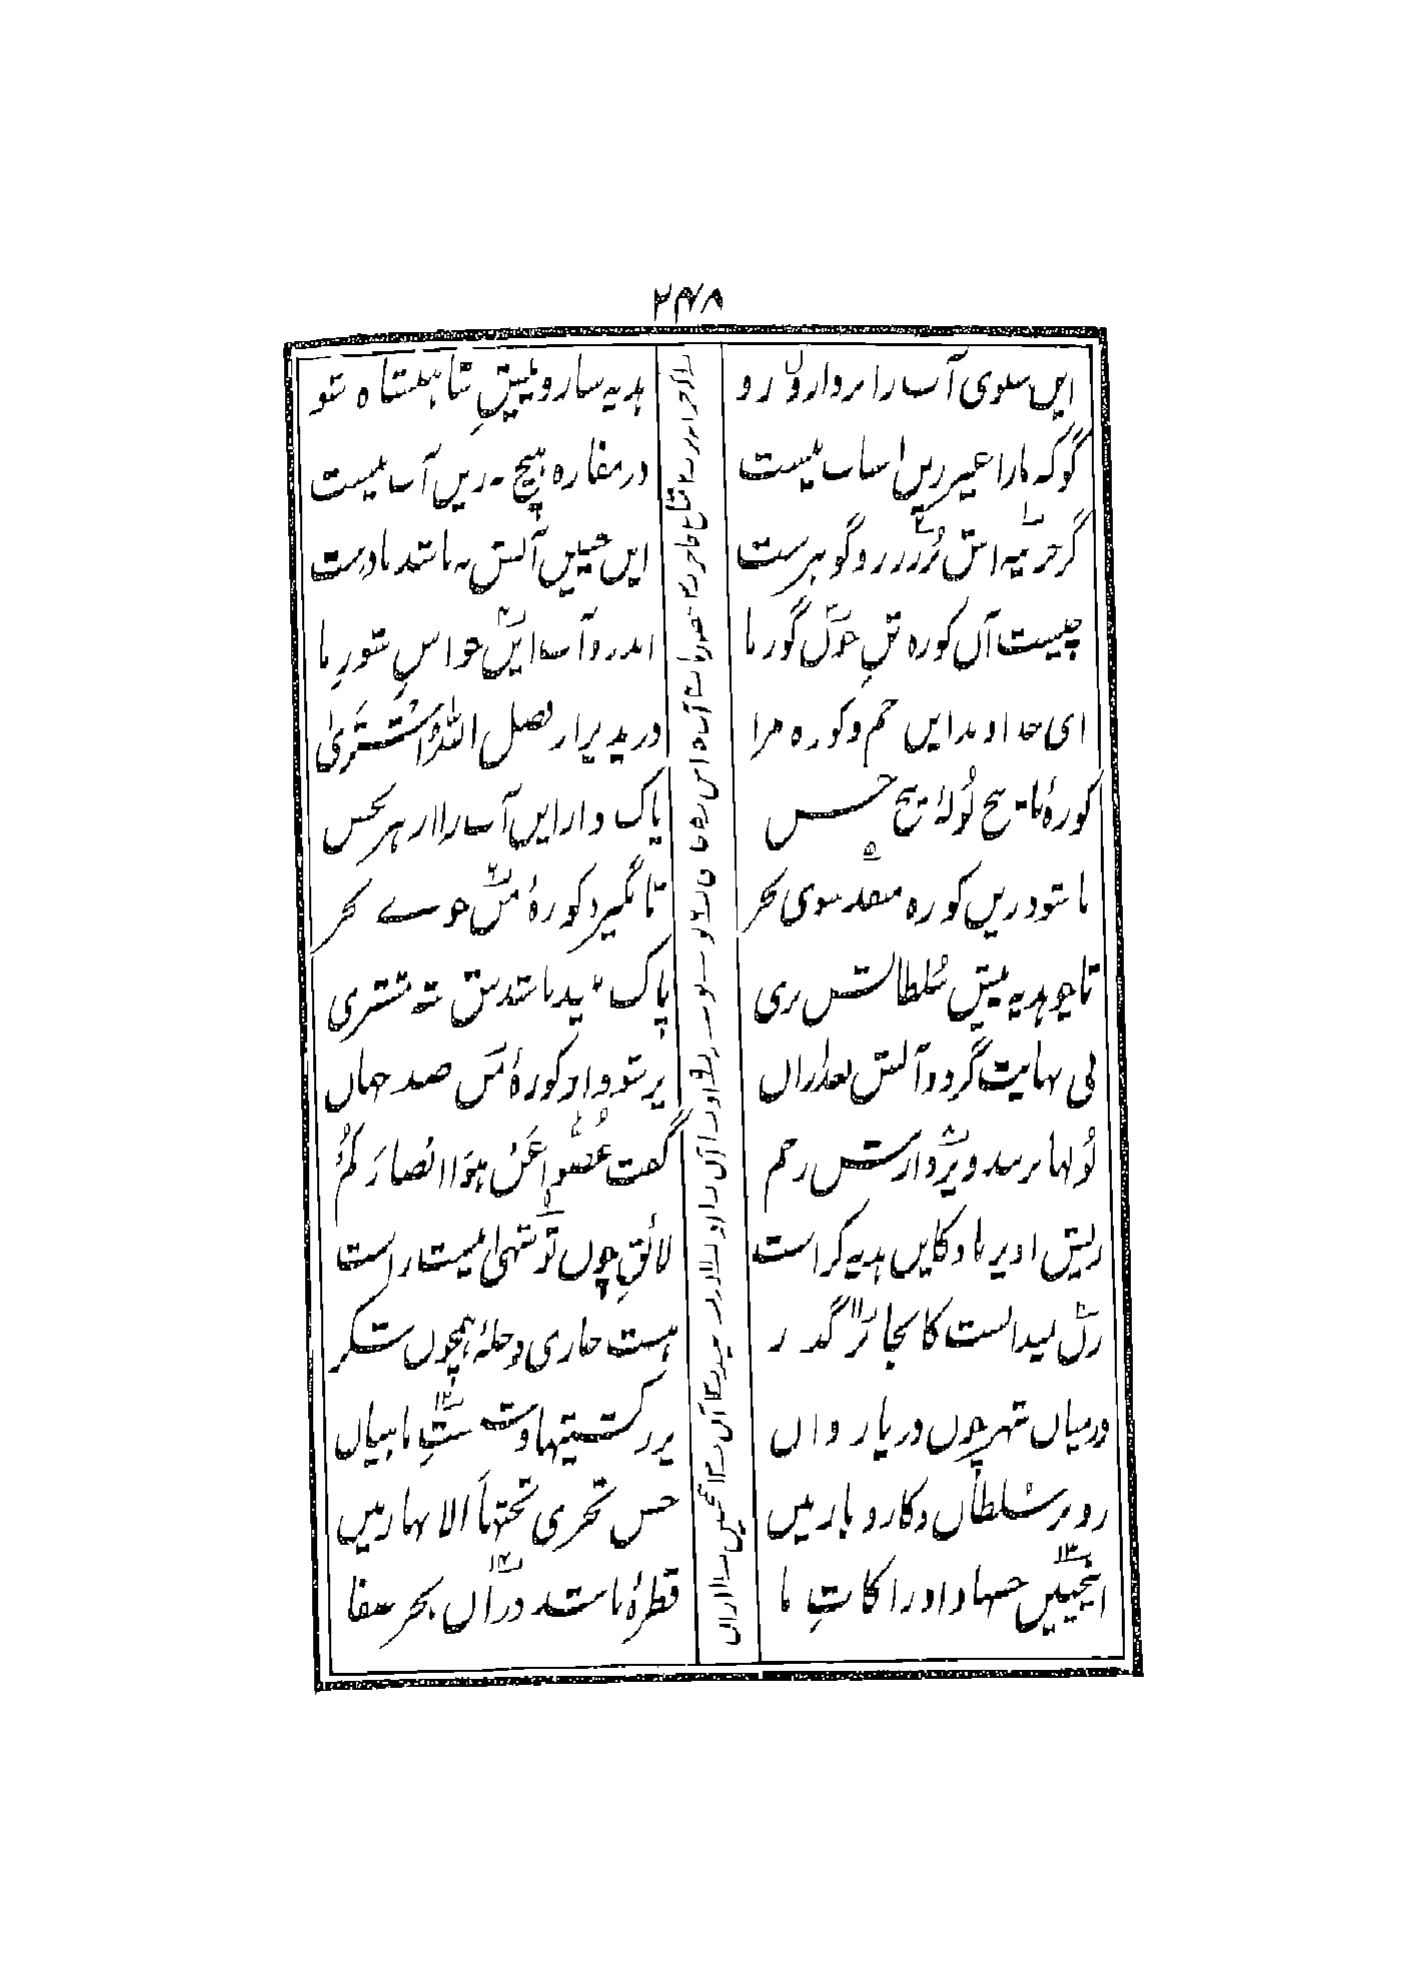 ۲۴۸
ایں سبوی آب را بردار و رو هدیه ساز و پیشِ شاهنشاه شو
گو که ما را غیر ریں اسباب نیست در مفازه هیچ به زیں آب نیست
گر خزینه اش پُر زر و گوهرست ایں چنیں آبش نباشد نادرست
چیست آں کوزه تنِ محصورِ ما اندرو آب ایں حواسِ شورِ ما
ای خداوند ایں خم و کوزه مرا در پذیر از فضل اللهُ اشْتَرَیٰ
کوزهٔ با پنج لُولهٔ پنج حس پاک دار ایں آب را از هر نجس
تا شود زیں کوزه منفذ سوی بحر تا بگیرد کوزهٔ من خوے بحر
تا چو هدیه پیشِ سُلطانش بری پاک بیند باشدش شه مشتری
بی نهایت گردد آبش بعد ازاں پر شود از کوزهٔ من صد جهاں
لُولها بربند و پُر دارش ز خم گفت غُضُّوا عَنْ هَوَا ابْصَارَکُمْ
ریش او پر باد کایں هدیه کراست لائقِ چوں تو شهی اینست راست
زن نمیدانست کانجا بر گذر هست جاری دجلهٔ همچوں شکر
درمیاں شهر چوں دریا رواں پر ز کشتیها و شستِ ماهیاں
رو بر سلطاں و کار و بار بیں حس تجری تحتها الانهار بیں
اینچنیں حسها و ادراکاتِ ما قطرهٔ باشد در آں بحر صفا